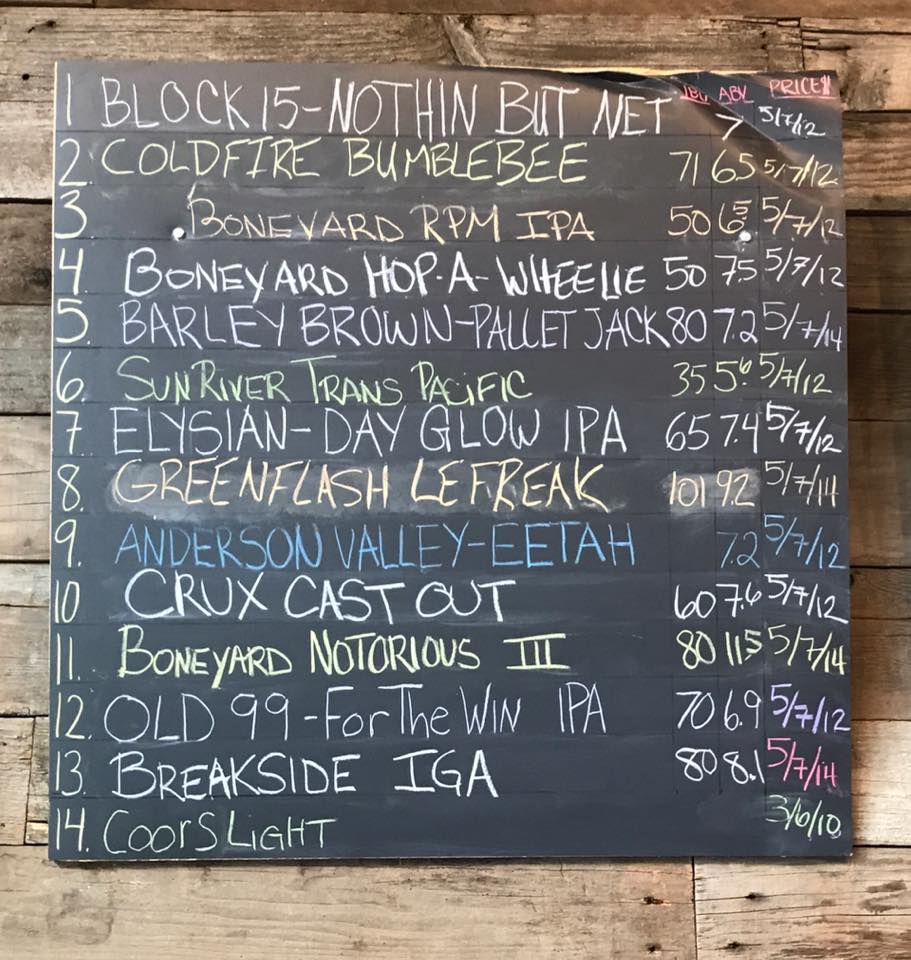 IBU ABV PRICE$
1 BLOCK 15-NOTHIN BUT NET 7 5/7/12
2. COLDFIRE BUMBLEBEE 71 65 5/7/12
3 BONEYARD RPM IPA 50 6.5 5/7/12
4 BONEYARD HOP-A-WHEELIE 50 7.5 5/7/12
5. BARLEY BROWN-PALLET JACK 80 7.2 5/7/14
6. SUNRIVER TRANS PACIFIC 35 5.6 5/7/12
7 ELYSIAN-DAY GLOW IPA 65 7.4 5/7/12
8. GREENFLASH LE FREAK 101 9.2 5/7/14
9. ANDERSON VALLEY-EETAH 7.2 5/7/12
10 CRUX CAST OUT 60 7.6 5/7/12
11. BONEYARD NOTORIOUS III 80 11.5 5/7/14
12. OLD 99-FOR THE WIN IPA 70 6.9 5/7/12
13. BREAKSIDE IGA 80 8.1 5/7/14
14. COORS LIGHT 3/6/10